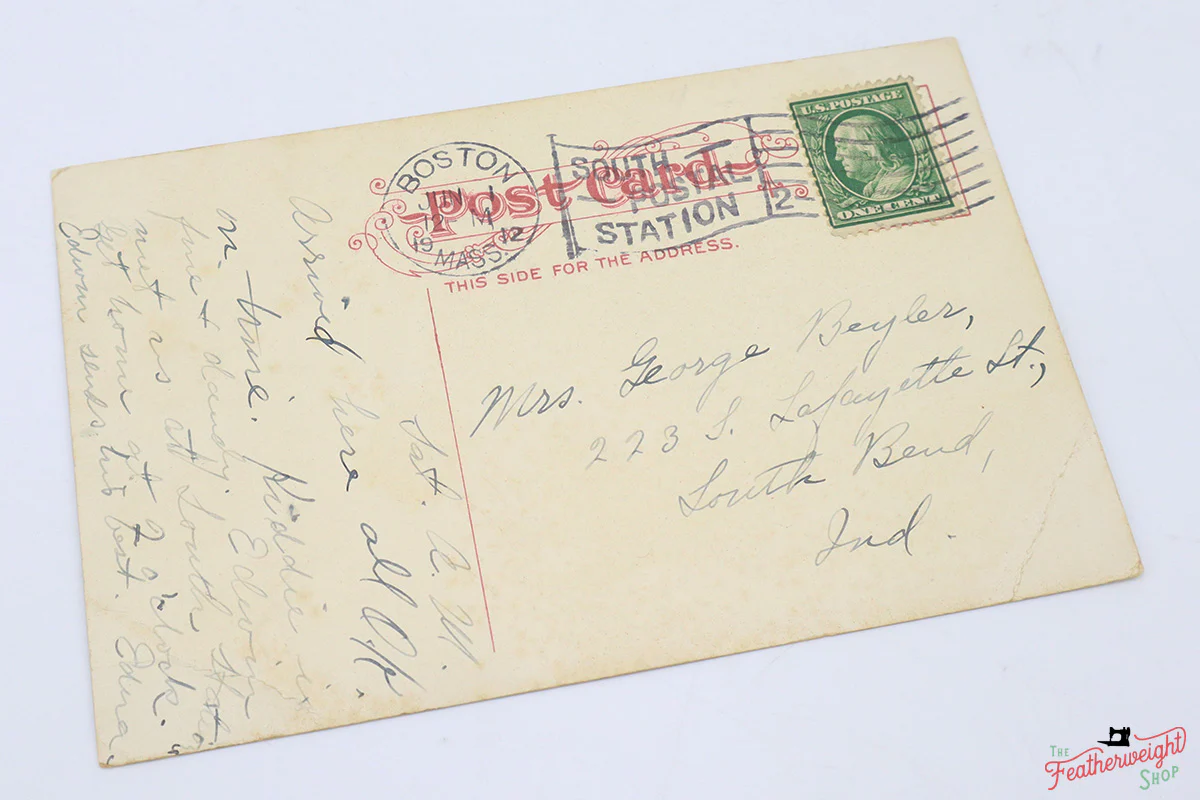 BOSTON
JUN 1
12 M
19 12
MASS.
SOUTH
POSTAL
STATION
2
U.S. POSTAGE
ONE CENT
Post Card
THIS SIDE FOR THE ADDRESS.
Sat. A.M.
Arrived here all OK.
on time. Kiddie is
fine & dandy. Edwin
met us at South Station
Get home at 2 o'clock.
Edwin sends his best. Edna
Mrs. George Beyler,
223 S. Lafayette St.,
South Bend,
Ind.
THE
Featherweight
SHOP